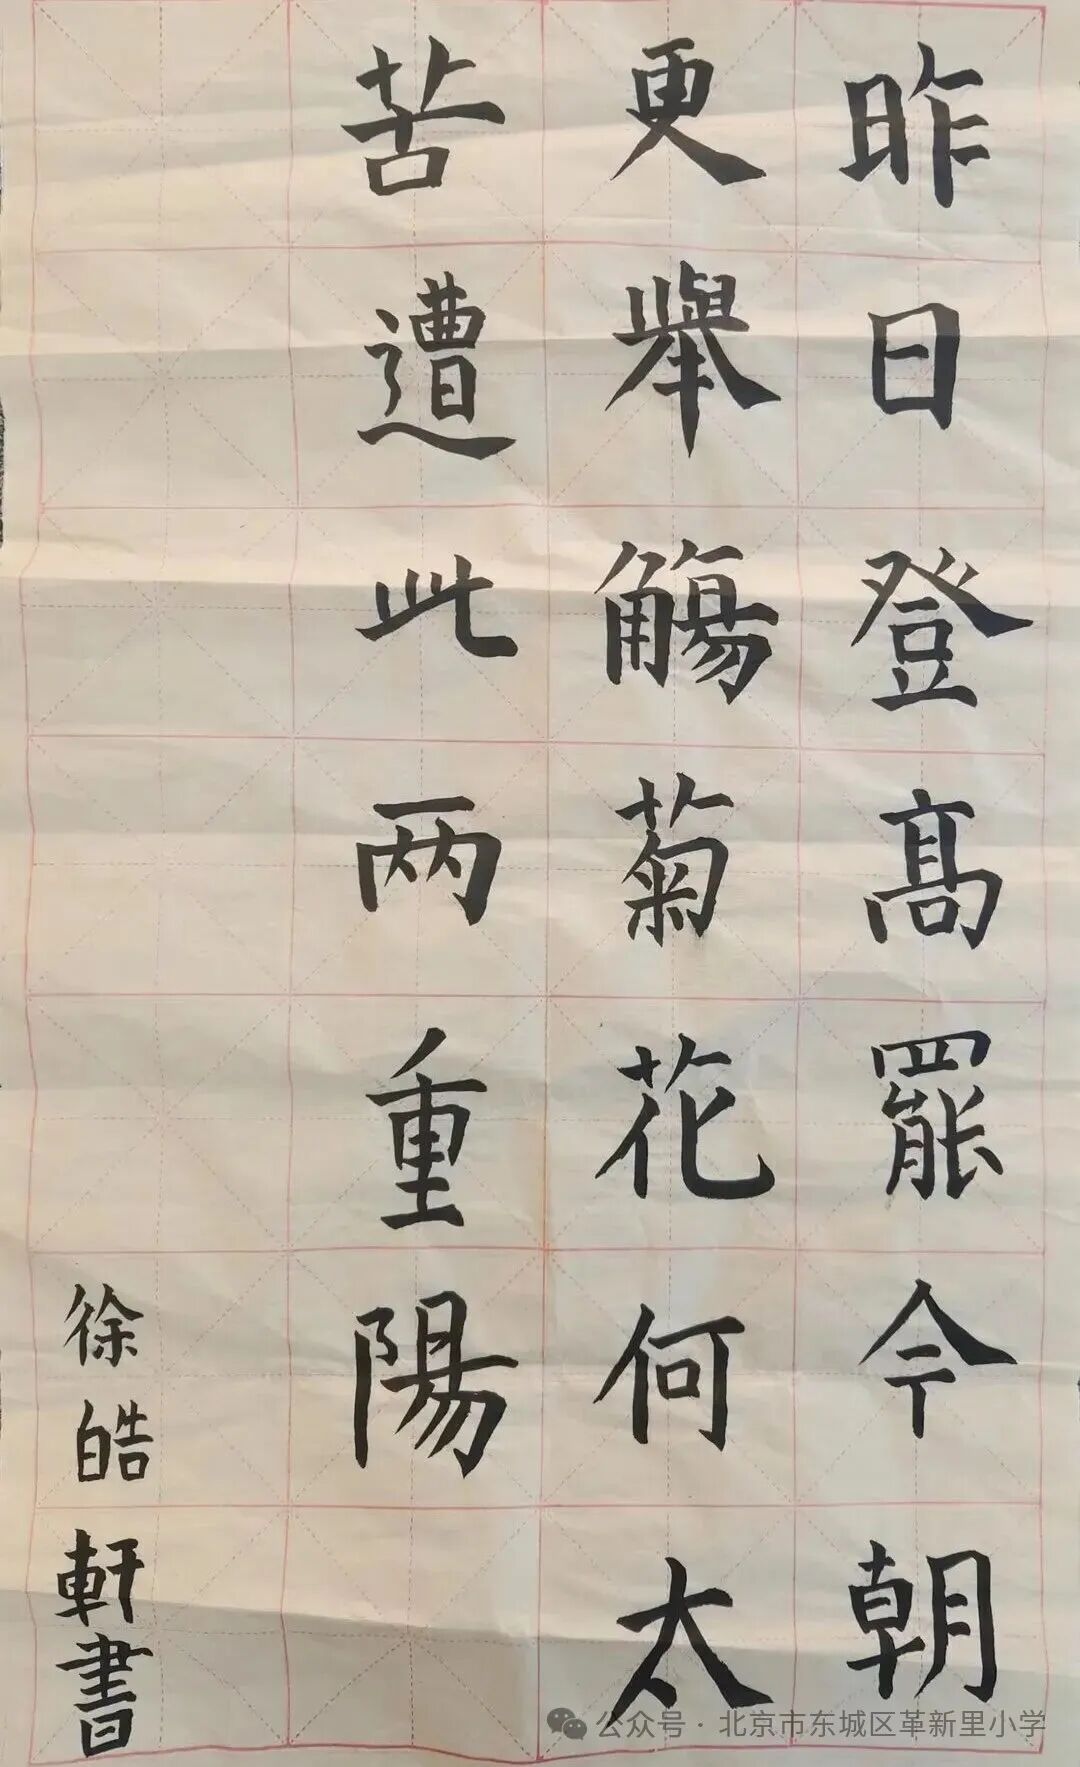 昨日登高罷今朝
更舉觴菊花何太
苦遭此两重陽
徐皓軒書
公众号·北京市东城区革新里小学